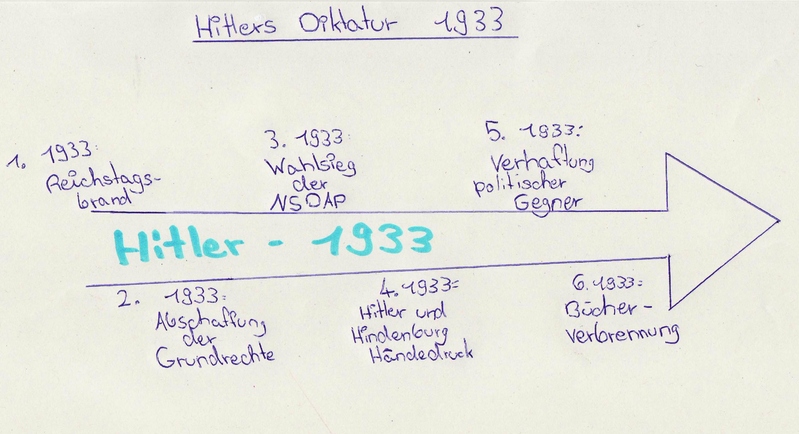 Hitlers Diktatur 1933
1. 1933:
Reichstags-
brand
3. 1933:
Wahlsieg
der
NSDAP
5. 1933:
Verhaftung
politischer
Gegner
Hitler - 1933
2. 1933:
Abschaffung
der
Grundrechte
4. 1933:
Hitler und
Hindenburg
Händedruck
6. 1933:
Bücher-
verbrennung